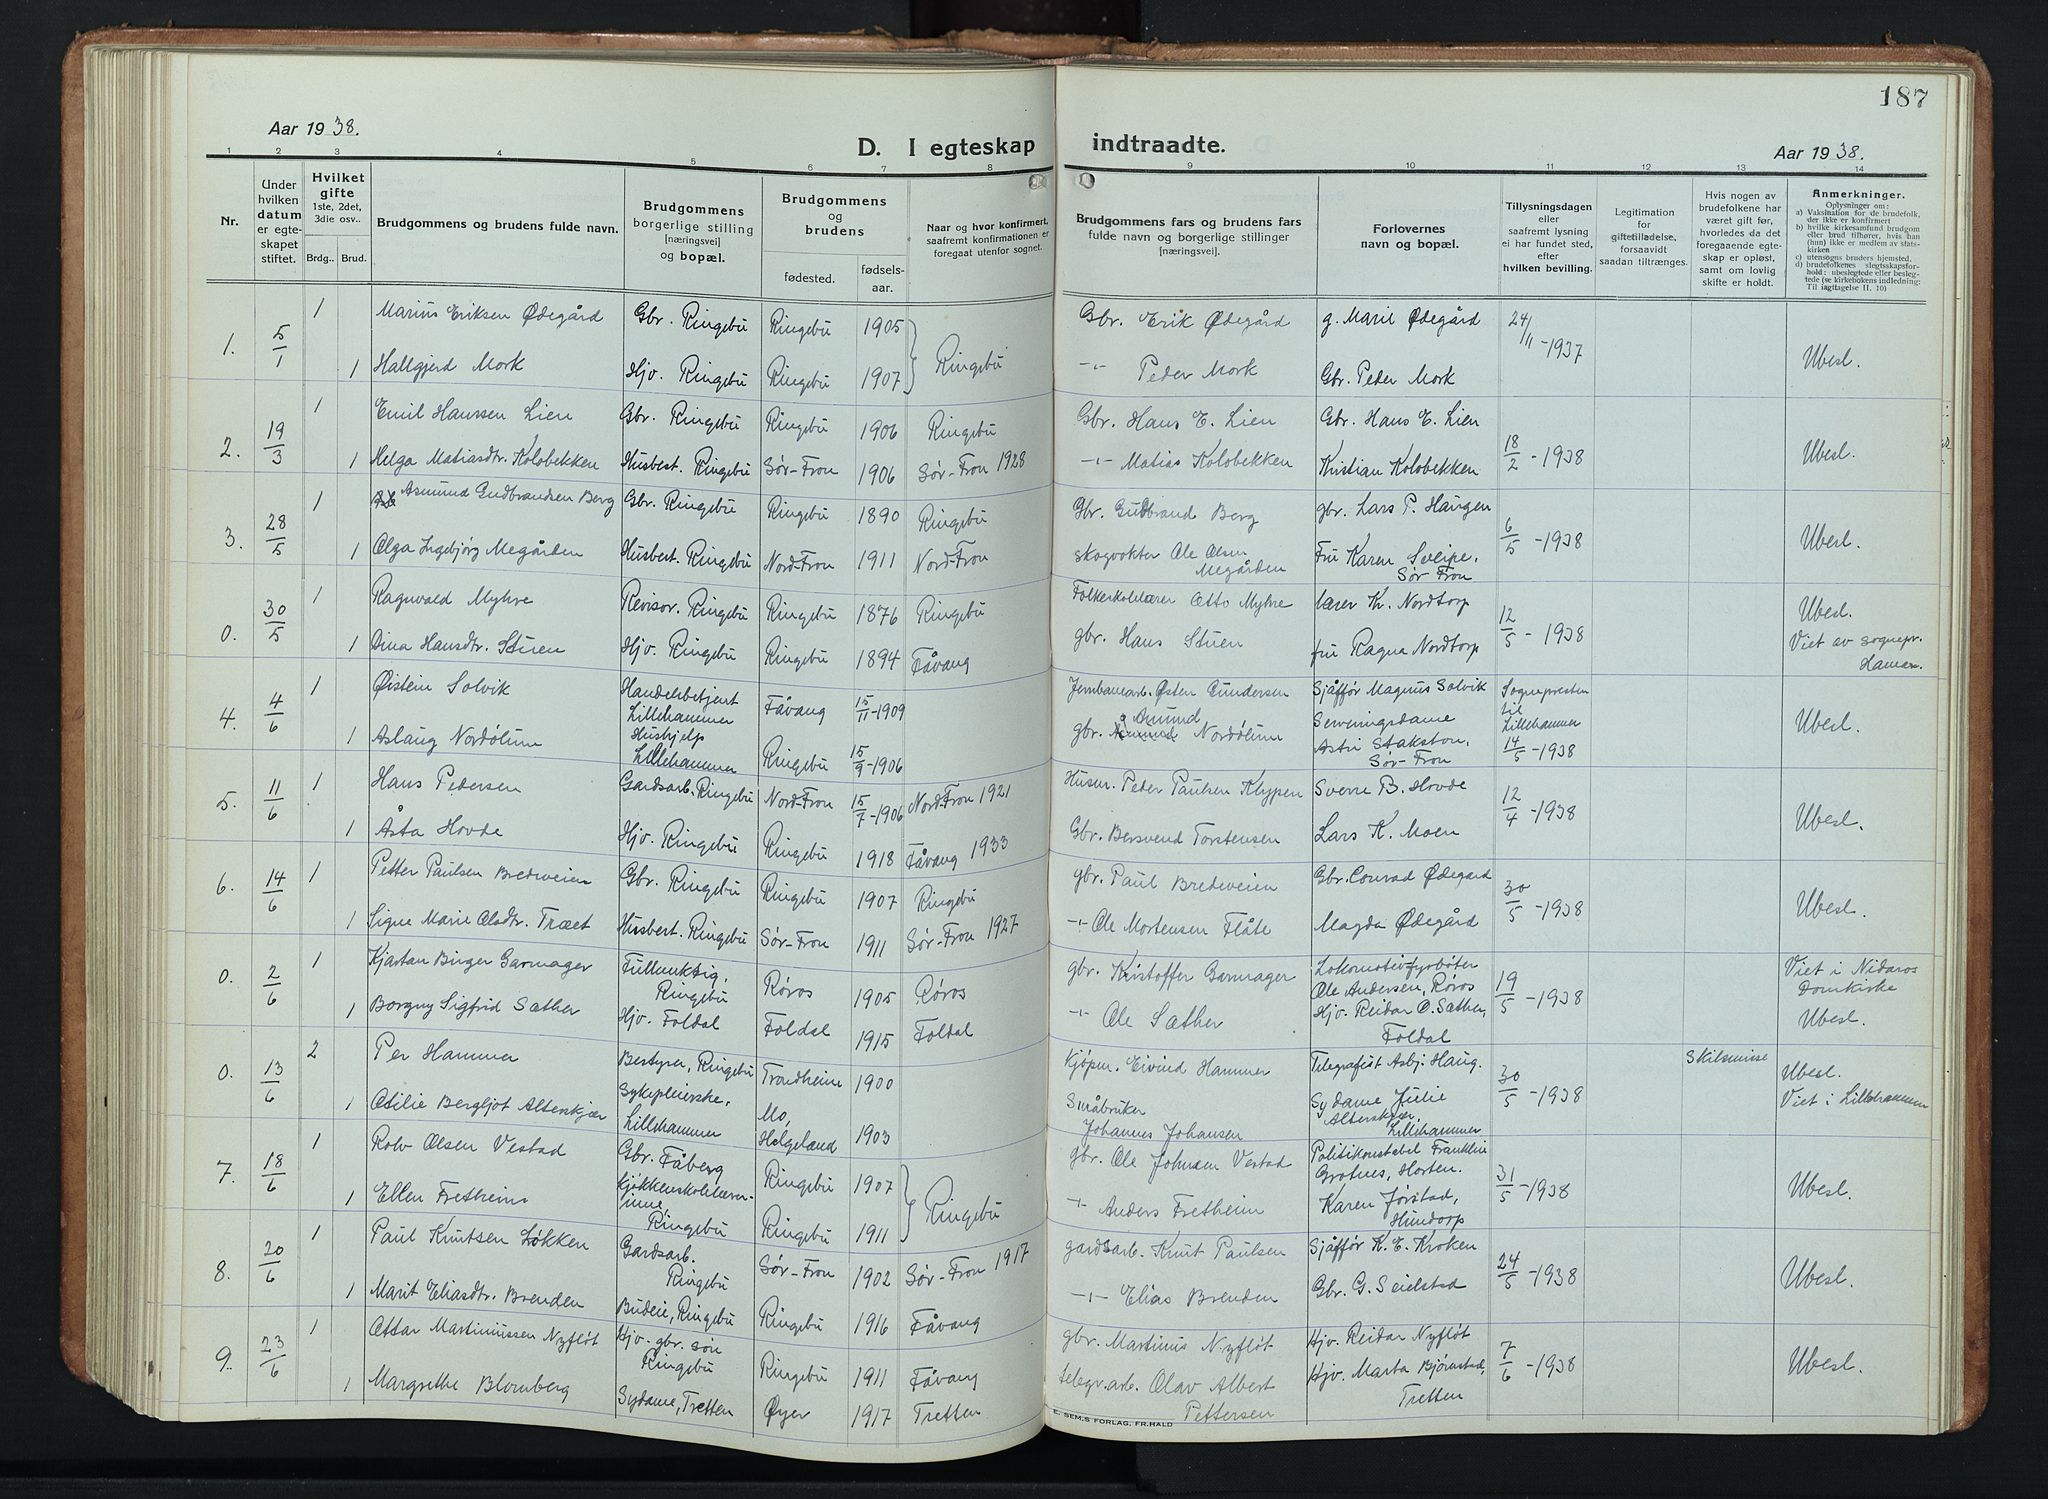 187
Aar 1938.
D. I egteskap indtraadte.
Aar 1938.
1 2 3 4 5 6 7 8 9 10 11 12 13 14
Nr.
Under hvilken datum er egteskapet stiftet.
Hvilket gifte 1ste, 2det, 3die osv..
Brdg.. Brud.
Brudgommens og brudens fulde navn.
Brudgommens borgerlige stilling [næringsvei] og bopæl.
Brudgommens og brudens
fødested. fødselsaar.
Naar og hvor konfirmert, saafremt konfirmationen er foregaat utenfor sognet.
Brudgommens fars og brudens fars fulde navn og borgerlige stillinger [næringsvei].
Forlovernes navn og bopæl.
Tillysningsdagen eller saafremt lysning ei har fundet sted, efter hvilken bevilling.
Legitimation for giftetilladelse, forsaavidt saadan tiltrænges.
Hvis nogen av brudefolkene har været gift før, hvorledes da det foregaaende egteskap er opløst, samt om lovlig skifte er holdt.
Anmerkninger.
Oplysninger om:
a) Vaksination for de brudefolk, der ikke er konfirmert
b) hvilke kirkesamfund brudgom eller brud tilhører, hvis han (hun) ikke er medlem av statskirken
c) utensogns bruders hjemsted.
d) brudefolkenes slegtsskapsforhold: ubeslegtede eller beslegtede (se kirkebokens indledning: Til iagttagelse II. 10)
1. 5/1 1 Marius Eriksen Ødegård Gbr. Ringebu Ringebu 1905 Ringebu Gbr. Erik Ødegård g. Marie Ødegård 24/11-1937 Ubesl.
1 Hallgjerd Mork Hjv. Ringebu Ringebu 1907 -"- Peder Mork Gbr. Peder Mork
2. 19/3 1 Emil Hanssen Lien Gbr. Ringebu Ringebu 1906 Ringebu Gbr. Hans E. Lien Gbr. Hans E. Lien 18/2-1938 Ubesl.
1 Helga Matiasdtr. Kolobekken Husbest. Ringebu Sør-Fron 1906 Sør-Fron 1928 -"- Matias Kolobekken Kristian Kolobekken
3. 28/5 1 Asmund Gudbrandsen Berg Gbr. Ringebu Ringebu 1890 Ringebu Gbr. Gudbrand Berg gbr. Lars P. Haugen 6/5-1938 Ubesl.
1 Olga Ingebjørg Megården Husbest. Ringebu Nord-Fron 1911 Nord-Fron skogvokter Ole Olsen Megården Fru Karen Sveipe, Sør-Fron
0. 30/5 1 Ragnvald Myhre Revisor. Ringebu Ringebu 1876 Ringebu Folkeskolelærer Otto Myhre lærer Kr. Nordtorp 12/5-1938 Ubesl.
1 Dina Hansdtr. Stuen Hjv. Ringebu Ringebu 1894 Fåvang gbr. Hans Stuen fru Ragna Nordtorp Viet av sognepr. Hamar.
4. 4/6 1 Øistein Solvik Handelsbetjent Lillehammer Fåvang 15/11-1909 Jernbanearb. Østen Gundersen Sjåffør Magnus Solvik Sognepresten til Lillehammer 14/5-1938 Ubesl.
1 Aslaug Nordølum Hushjelp Lillehammer Ringebu 15/9-1906 gbr. Amund Nordølum Serveringsdame Astri Stakston, Sør-Fron
5. 11/6 1 Hans Pedersen Gardsarb. Ringebu Nord-Fron 15/7-1906 Nord-Fron 1921 Husm. Peder Paulsen Klypen Sverre B. Hovde 12/4-1938 Ubesl.
1 Åsta Hovde Hjv. Ringebu Ringebu 1918 Fåvang 1933 Gbr. Bersvend Torstensen Lars K. Moen
6. 14/6 1 Petter Paulsen Bredeveien Gbr. Ringebu Ringebu 1907 Ringebu gbr. Paul Bredeveien Gbr. Conrad Ødegard 30/5-1938 Ubesl.
1 Signe Marie Olsdtr. Træet Husbest. Ringebu Sør-Fron 1911 Sør-Fron 1927 -"- Ole Mortensen Flåte Magda Ødegård
0. 2/6 1 Kjartan Birger Garmager Fullmektig, Ringebu Røros 1905 Røros gbr. Kristoffer Garmager Lokomotivfyrbøter Ole Andersen, Røros 19/5-1938 Viet i Nidaros Domkirke
1 Borgny Sigfrid Sæther Hjv. Foldal Foldal 1915 Foldal -"- Ole Sæther Hjv. Reidar O. Sæther, Foldal Ubesl.
0. 13/6 2 Per Hammer Bestyrer, Ringebu Trondheim 1900 Kjøpm. Eivind Hammer Telegrafist Asbj. Haug. 30/5-1938 Skilsmisse Ubesl.
1 Otilie Bergljot Alterskjær Sykepleierske, Lillehammer Mo, Helgeland 1903 Småbruker Johannes Johansen Sydame Julie Alterskjær, Lillehammer Viet i Lillehammer
7. 18/6 1 Rolv Olsen Vestad Gbr. Fåberg Ringebu 1907 Ringebu gbr. Ole Johnsen Vestad Politikonstabel Franklin Grotnes, Horten. 31/5-1938 Ubesl.
1 Ellen Fretheim Kjøkkenskolelærerinne, Ringebu Ringebu 1911 -"- Anders Fretheim Karen Jørstad, Hundorp
8. 20/6 1 Paul Knutsen Løkken Gardsarb. Ringebu Sør-Fron 1902 Sør-Fron 1917 gardsarb. Knut Paulsen Sjåffør K. E. Kroken 24/5-1938 Ubesl.
1 Marit Eliasdtr. Brenden Budeie, Ringebu Ringebu 1916 Fåvang -"- Elias Brenden Gbr. G. Seielstad
9. 23/6 1 Ottar Martinussen Nyfløt Hjv. gbr. søn Ringebu Ringebu 1911 Fåvang gbr. Martinus Nyfløt Hjv. Reidar Nyfløt 7/6-1938 Ubesl.
1 Margrethe Blomberg Sydame, Tretten Øyer 1917 Tretten telegr.arb. Olav Albert Pettersen Hjv. Marta Bjørnstad, Tretten
E. SEM.S FORLAG, FR.HALD